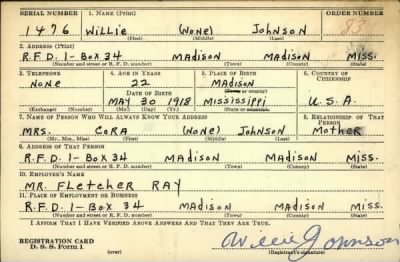 SERIAL NUMBER 1. NAME (Print) ORDER NUMBER
1476 WILLIE (NONE) JOHNSON 83
(First) (Middle) (Last)
2. ADDRESS (Print)
R.F.D. 1- BOX 34 MADISON MADISON MISS.
(Number and street or R. F. D. number) (Town) (County) (State)
3. TELEPHONE 4. AGE IN YEARS 5. PLACE OF BIRTH 6. COUNTRY OF CITIZENSHIP
NONE 22 MADISON
DATE OF BIRTH (Town or county)
MAY 30 1918 MISSISSIPPI U.S.A.
(Exchange) (Number) (Mo.) (Day) (Yr.) (State or country)
7. NAME OF PERSON WHO WILL ALWAYS KNOW YOUR ADDRESS 8. RELATIONSHIP OF THAT PERSON
MRS. CORA (NONE) JOHNSON MOTHER
(Mr., Mrs., Miss) (First) (Middle) (Last)
9. ADDRESS OF THAT PERSON
R.F.D. 1- BOX 34 MADISON MADISON MISS.
(Number and street or R. F. D. number) (Town) (County) (State)
10. EMPLOYER'S NAME
MR. FLETCHER RAY
11. PLACE OF EMPLOYMENT OR BUSINESS
R.F.D. 1- BOX 34 MADISON MADISON MISS.
(Number and street or R. F. D. number) (Town) (County) (State)
I AFFIRM THAT I HAVE VERIFIED ABOVE ANSWERS AND THAT THEY ARE TRUE.
REGISTRATION CARD
D. S. S. Form 1 (over) Willie Johnson
(Registrant's signature)